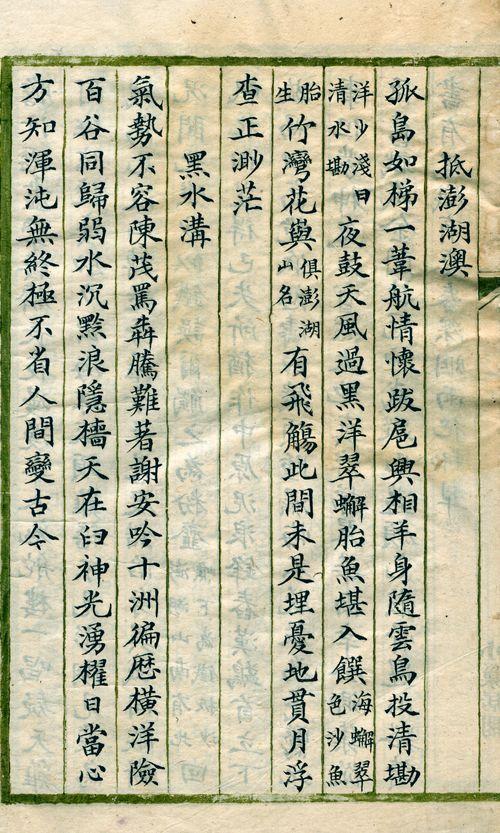 抵澎湖澳
孤島如梯一葦航情懷跋扈興相羊身隨雲鳥投清墈
洋少淺曰清水墈夜鼓天風過黑洋翠蠏胎魚堪入饌海蠏翠色沙魚
胎生竹灣花與俱澎湖山名有飛觴此間未是埋憂地貫月浮
查正渺茫
黑水溝
氣勢不容陳茂罵犇騰難著謝安吟十洲徧歷橫洋險
百谷同歸弱水沉黔浪隱檣天在臼神光湧櫂日當心
方知渾沌無終極不省人間變古今